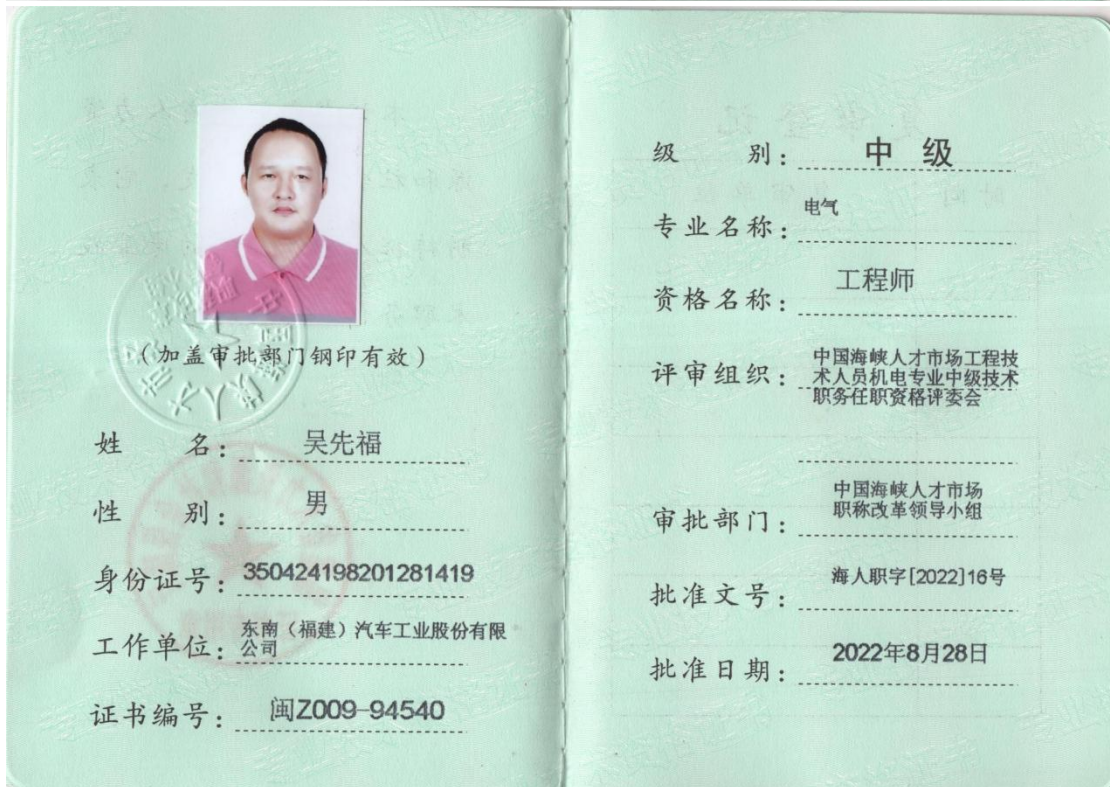 （加盖审批部门钢印有效）
姓 名： 吴先福
性 别： 男
身份证号： 350424198201281419
工作单位： 东南（福建）汽车工业股份有限
公司
证书编号： 闽Z009-94540
级 别： 中 级
专业名称： 电气
资格名称： 工程师
评审组织： 中国海峡人才市场工程技
术人员机电专业中级技术
职务任职资格评委会
审批部门： 中国海峡人才市场
职称改革领导小组
批准文号： 海人职字[2022]16号
批准日期： 2022年8月28日